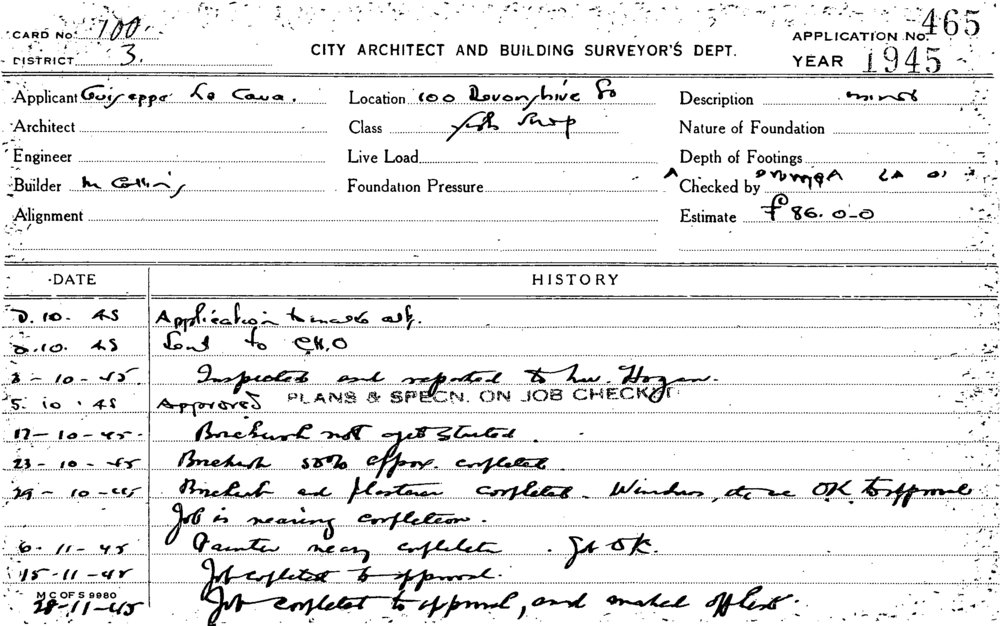 CARD No. 100.
DISTRICT 3.
CITY ARCHITECT AND BUILDING SURVEYOR'S DEPT.
APPLICATION No. 465
YEAR 1945
Applicant Guiseppe La Cava. Location 100 Devonshire St Description minor
Architect Class fish shop Nature of Foundation
Engineer Live Load Depth of Footings
Builder M Collins Foundation Pressure Checked by
Alignment Estimate £86.0-0
DATE HISTORY
2.10.45 Application to
2.10.45 Sent to C.H.O
3-10-45. Inspected and reported to Mr. Hogan.
5.10.45 Approved PLANS & SPECN. ON JOB CHECKED
17-10-45. Brickwork not yet started.
23-10-45 Brickwork 50% approx. completed.
29-10-45 Brickwork and plasterer completed. Windows, etc are OK. to approval
Job is nearing completion.
6-11-45 Painter near complete. Job OK.
15-11-45 Job completed to approval.
M C OF S 9980
28-11-45 Job completed to approval, and marked off list.